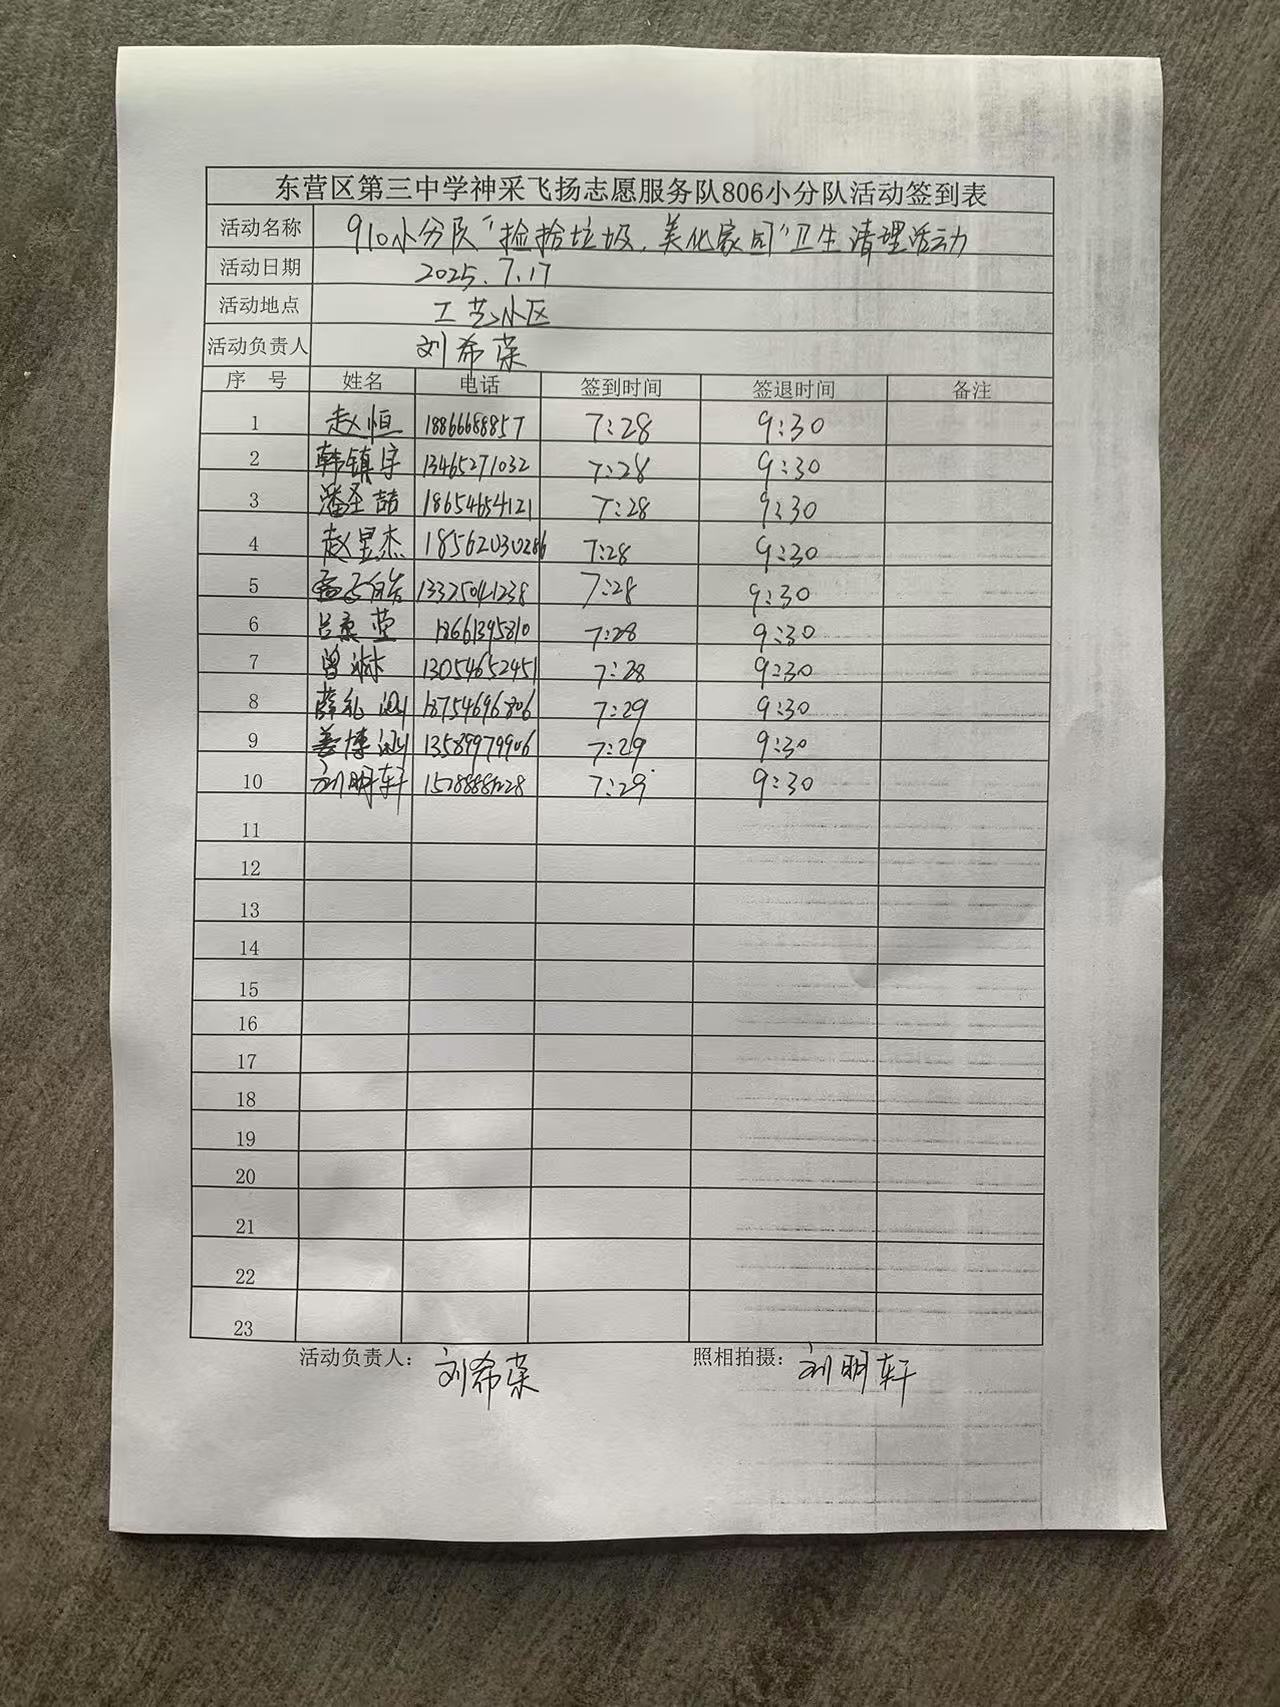 东营区第三中学神采飞扬志愿服务队806小分队活动签到表
活动名称 910小分队“捡拾垃圾，美化家园”卫生清理活动
活动日期 2025.7.17
活动地点 工艺小区
活动负责人 刘希荣
序 号 姓名 电话 签到时间 签退时间 备注
1 赵恒 18866688857 7:28 9:30
2 韩镇宇 13465271032 7:28 9:30
3 潘圣喆 18654654121 7:28 9:30
4 赵昱杰 18562030286 7:28 9:30
5 13325041238 7:28 9:30
6 吕柔萱 18661395810 7:28 9:30
7 曾淋 13054652451 7:28 9:30
8 薛礼 18754696806 7:29 9:30
9 姜博渊 13589979906 7:29 9:30
10 刘明轩 7:29 9:30
11
12
13
14
15
16
17
18
19
20
21
22
23
活动负责人： 刘希荣 照相拍摄： 刘明轩